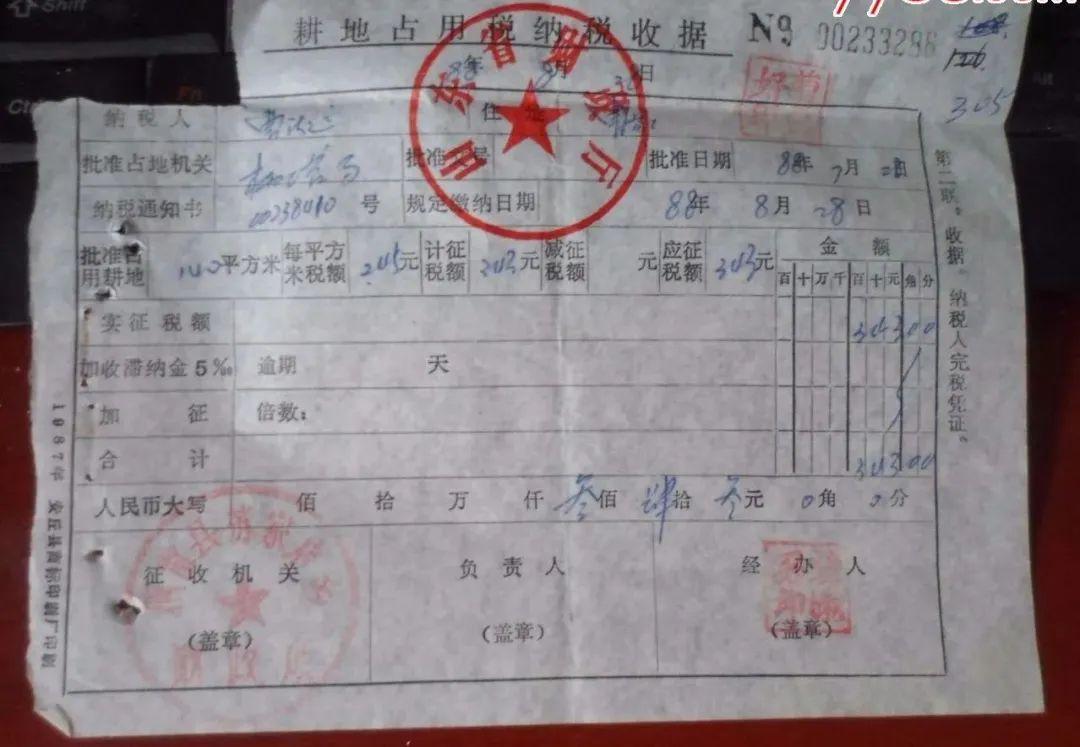 Shift
耕地占用税纳税收据 № 00233286
88年 8月 日
305
纳税人 住址
批准占地机关 批准文号 批准日期 88年 7月 日
纳税通知书 号 规定缴纳日期 88年 8月 28日
批准占用耕地 140平方米 每平方米税额 2.45元 计征税额 343元 减征税额 元 应征税额 343元 金额
百十万千百十元角分
实征税额 343 00
加收滞纳金5‰ 逾期 天
加征 倍数：
合计 343 00
人民币大写 佰 拾 万 仟 叁佰 肆拾 叁元 0角 0分
征收机关 负责人 经办人
(盖章) (盖章) (盖章)
第二联：收据。纳税人完税凭证。
1987年 安丘县商标印刷厂印刷
山东省财政厅
财政所